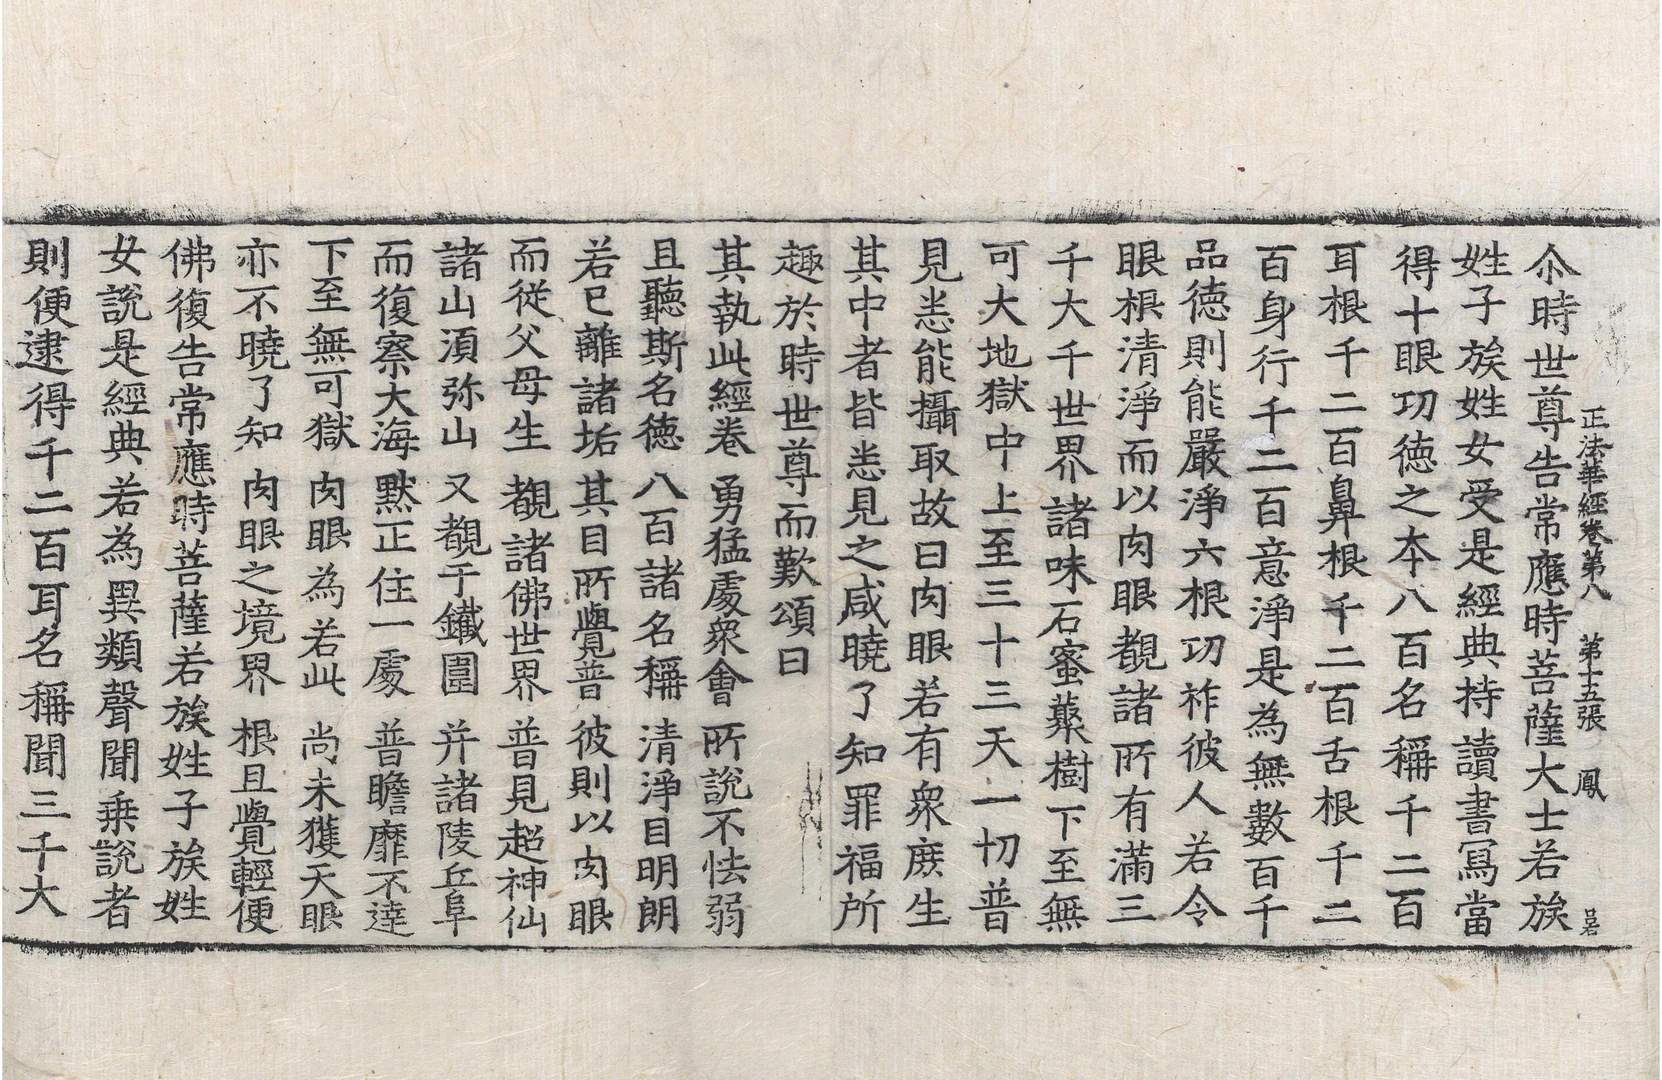 正法華經卷第八 第十五張 鳳
尒時世尊告常應時菩薩大士若族
姓子族姓女受是經典持讀書寫當
得十眼功徳之本八百名稱千二百
耳根千二百鼻根千二百舌根千二
百身行千二百意淨是為無數百千
品徳則能嚴淨六根功祚彼人若令
眼根清淨而以肉眼覩諸所有滿三
千大千世界諸味石蜜藥樹下至無
可大地獄中上至三十三天一切普
見悉能攝取故曰肉眼若有衆庶生
其中者皆悉見之咸曉了知罪福所
趣於時世尊而歎頌曰
其執此經卷 勇猛處衆會 所説不怯弱
且聽斯名徳 八百諸名稱 清淨目明朗
若已離諸垢 其目所覺普 彼則以肉眼
而従父母生 覩諸佛世界 普見超神仙
諸山湏弥山 又覩于鐵圍 并諸陵丘阜
而復察大海 黙正住一處 普瞻靡不達
下至無可獄 肉眼為若此 尚未獲天眼
亦不曉了知 肉眼之境界 根且覺輕便
佛復告常應時菩薩若族姓子族姓
女説是經典若為異類聲聞乗説者
則便逮得千二百耳名稱聞三千大